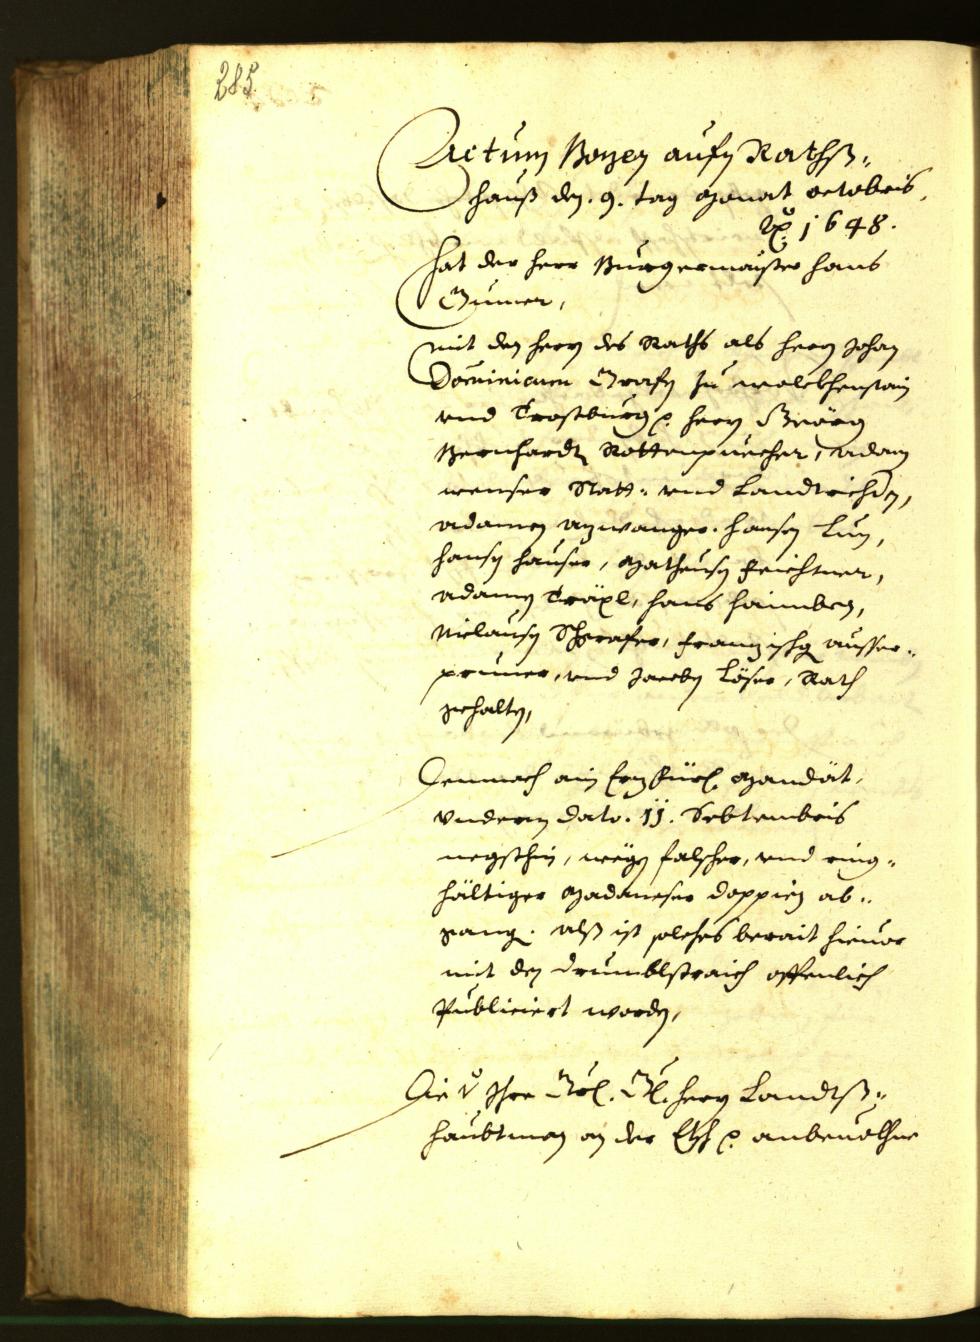 285.
Actum Bozen aufn Rathß-
hauß den . 9. tag Monat octobris,
A̅o̅ 1648.
hat der herr Burgermaister Hans
Gumer,
mit den herrn des Raths als herrn Johan
Dominicum Grafn zu Wolckhenstain
vnd Trostburg p. herrn Georg
Bernhardt Rottenpuecher, Adam
Wenser Statt- vnd Landtrichter,
Adamen Anwanger. Hansen Lun,
Hansn Hauser, Matheusn Feichtner,
Adamn Träxl, Hans Haimbl,
Niclausn Schrafer, Franzischg Ausser-
prunner, vnd Jacobn Löser, Rath
gehaltn,
Demnach ain Erzfürl. Mandat,
vnderm dato. 11. Sebtembris
negsthin, wegn falscher, vnd ring-
hältiger Madoneser doppien ab-
gang. alß ist solches berait hieuor
mit den drumblstraich offenlich
Publiciert worden,
Die v Ihre Gräfl. Gl. herrn Landtß-
haubtman an der Etsch p. anbeuolhne